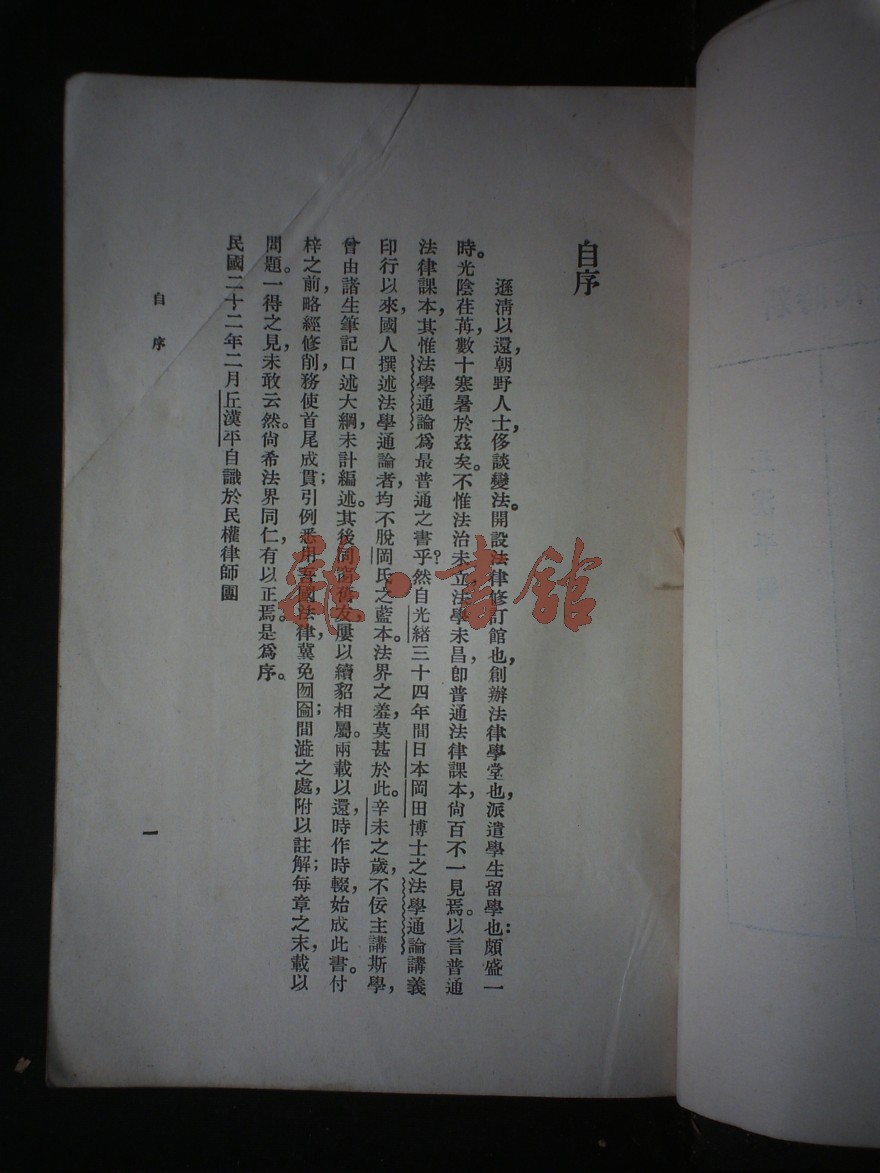 自序
遜淸以還，朝野人士，侈談變法。開設法律修訂館也，創辦法律學堂也，派遣學生留學也：頗盛一
時。光陰荏苒，數十寒暑於茲矣。不惟法治未立，法學未昌，卽普通法律課本，尙百不一見焉。以言普通
法律課本，其惟法學通論爲最普通之書乎？然自光緒三十四年間日本岡田博士之法學通論講義
印行以來，國人撰述法學通論者，均不脫岡氏之藍本。法界之羞，莫甚於此。辛未之歲，不佞主講斯學，
曾由諸生筆記口述大綱，未計編述。其後同 友屢以續貂相屬。兩載以還，時作時輟，始成此書。付
梓之前，略經修削，務使首尾成貫；引例悉用吾國法律，冀免囫圇；間澁之處，附以註解；每章之末，載以
問題。一得之見，未敢云然。尙希法界同仁，有以正焉。是爲序。
民國二十二年二月丘漢平自識於民權律師團
自序
一
雜·書館